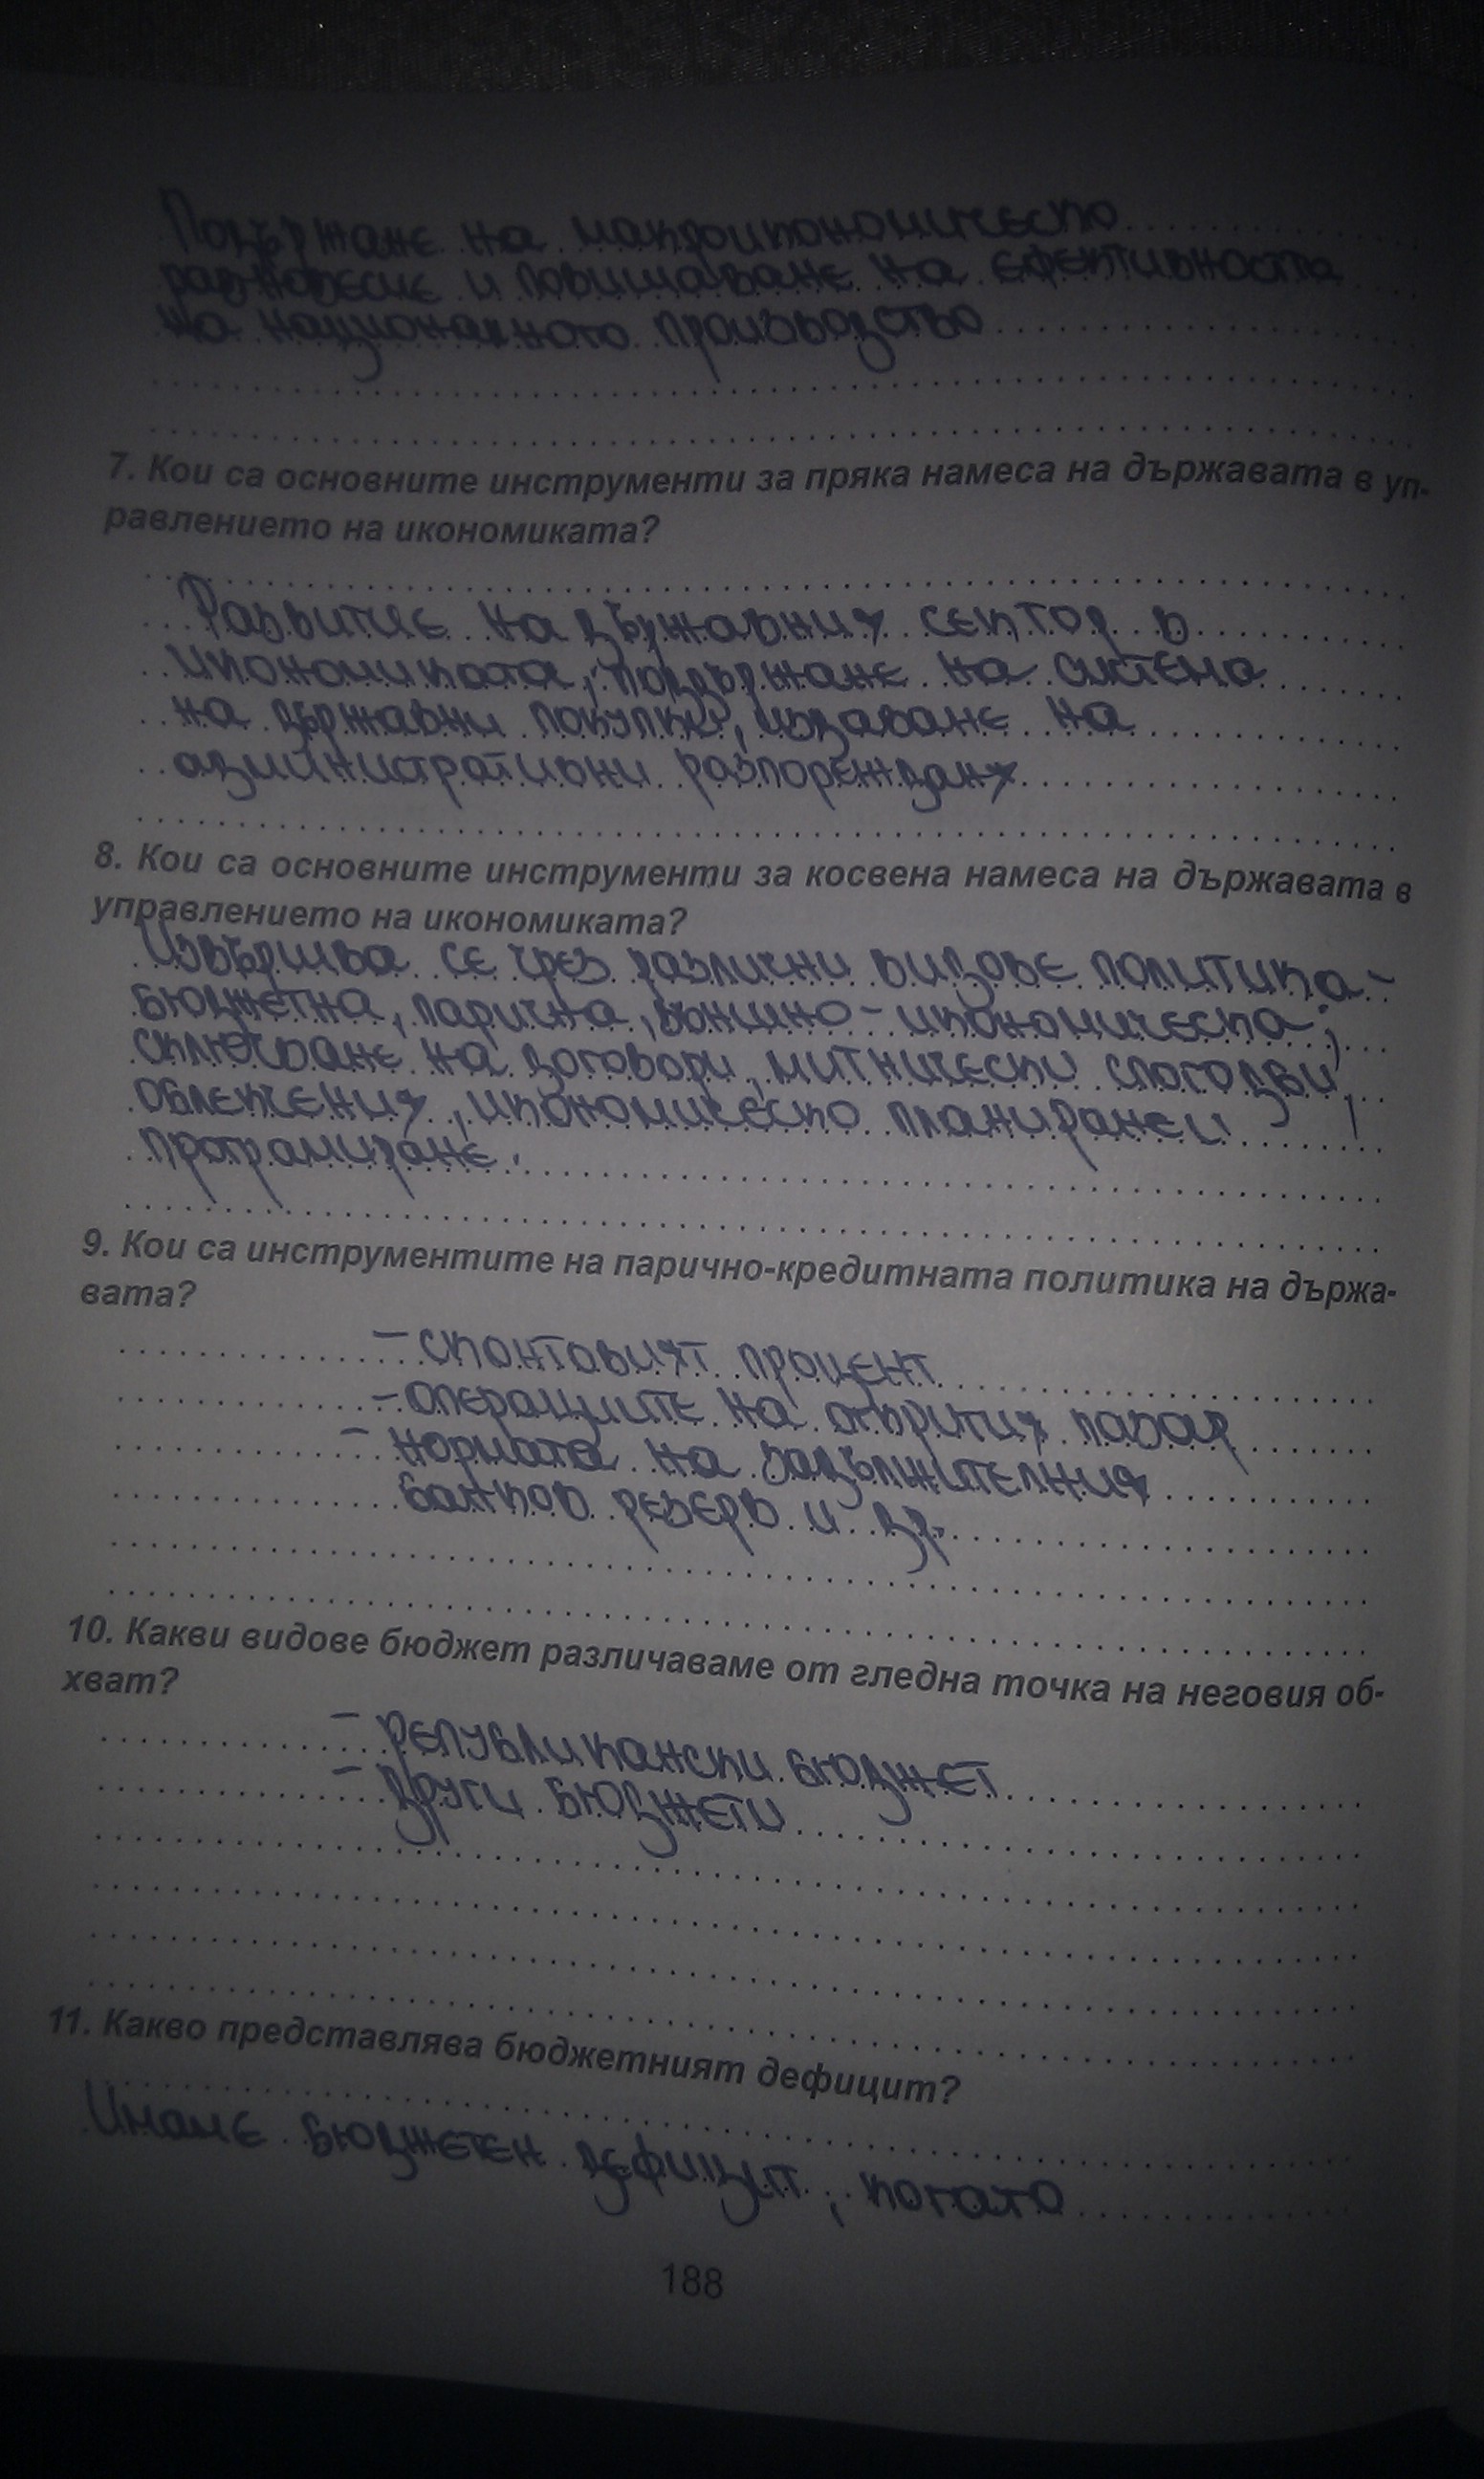 Подържане на макроикономическо
равновесие и повишаване на ефективността
на националното производство
7. Кои са основните инструменти за пряка намеса на държавата в уп-
равлението на икономиката?
Развитие на държавния сектор в
икономиката, поддържане на система
на държавни покупки, издаване на
административни разпореждания
8. Кои са основните инструменти за косвена намеса на държавата в
управлението на икономиката?
Извършва се чрез различни видове политика -
бюджетна, парична, външно - икономическа;
сключване на договори, митнически спогодби,
облекчения, икономическо планиране и
програмиране.
9. Кои са инструментите на парично-кредитната политика на държа-
вата?
- сконтовият процент
- операциите на открития пазар
- нормата на задължителния
банков резерв и др.
10. Какви видове бюджет различаваме от гледна точка на неговия об-
хват?
- републикански бюджет
- други бюджети
11. Какво представлява бюджетният дефицит?
Имаме бюджетен дефицит, когато
188